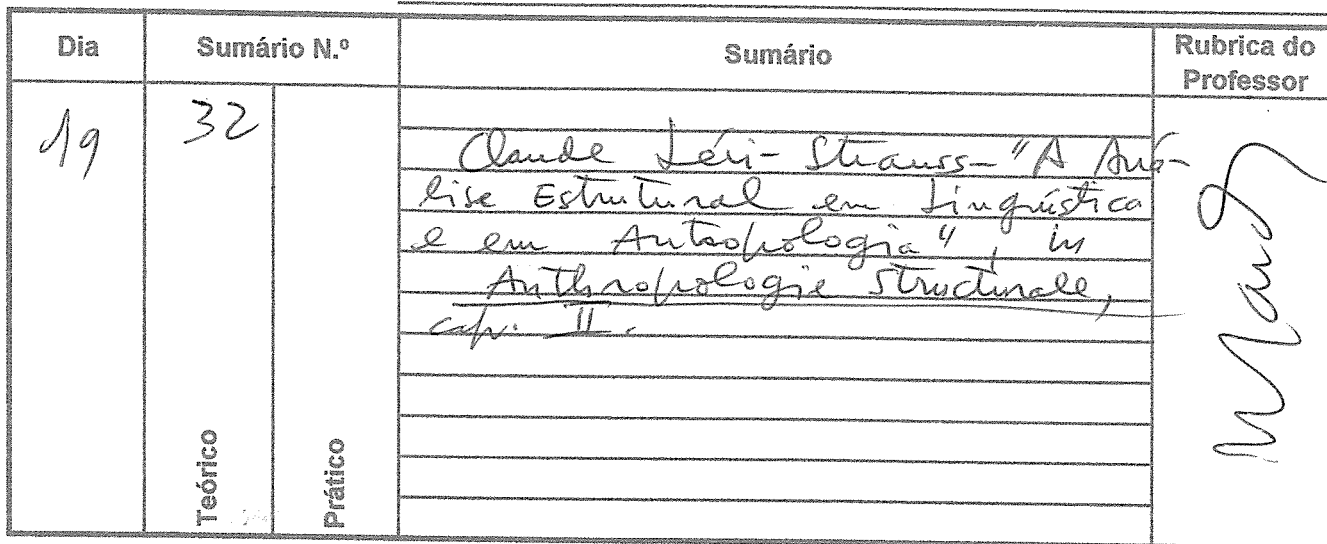 Dia
Sumário N.º
Sumário
Rubrica do
Professor
19
32
Claude Lévi-Strauss - "A Aná-
lise Estrutural em Linguística
e em Antropologia", in
Anthropologie Structurale,
cap. II.
Teórico
Prático